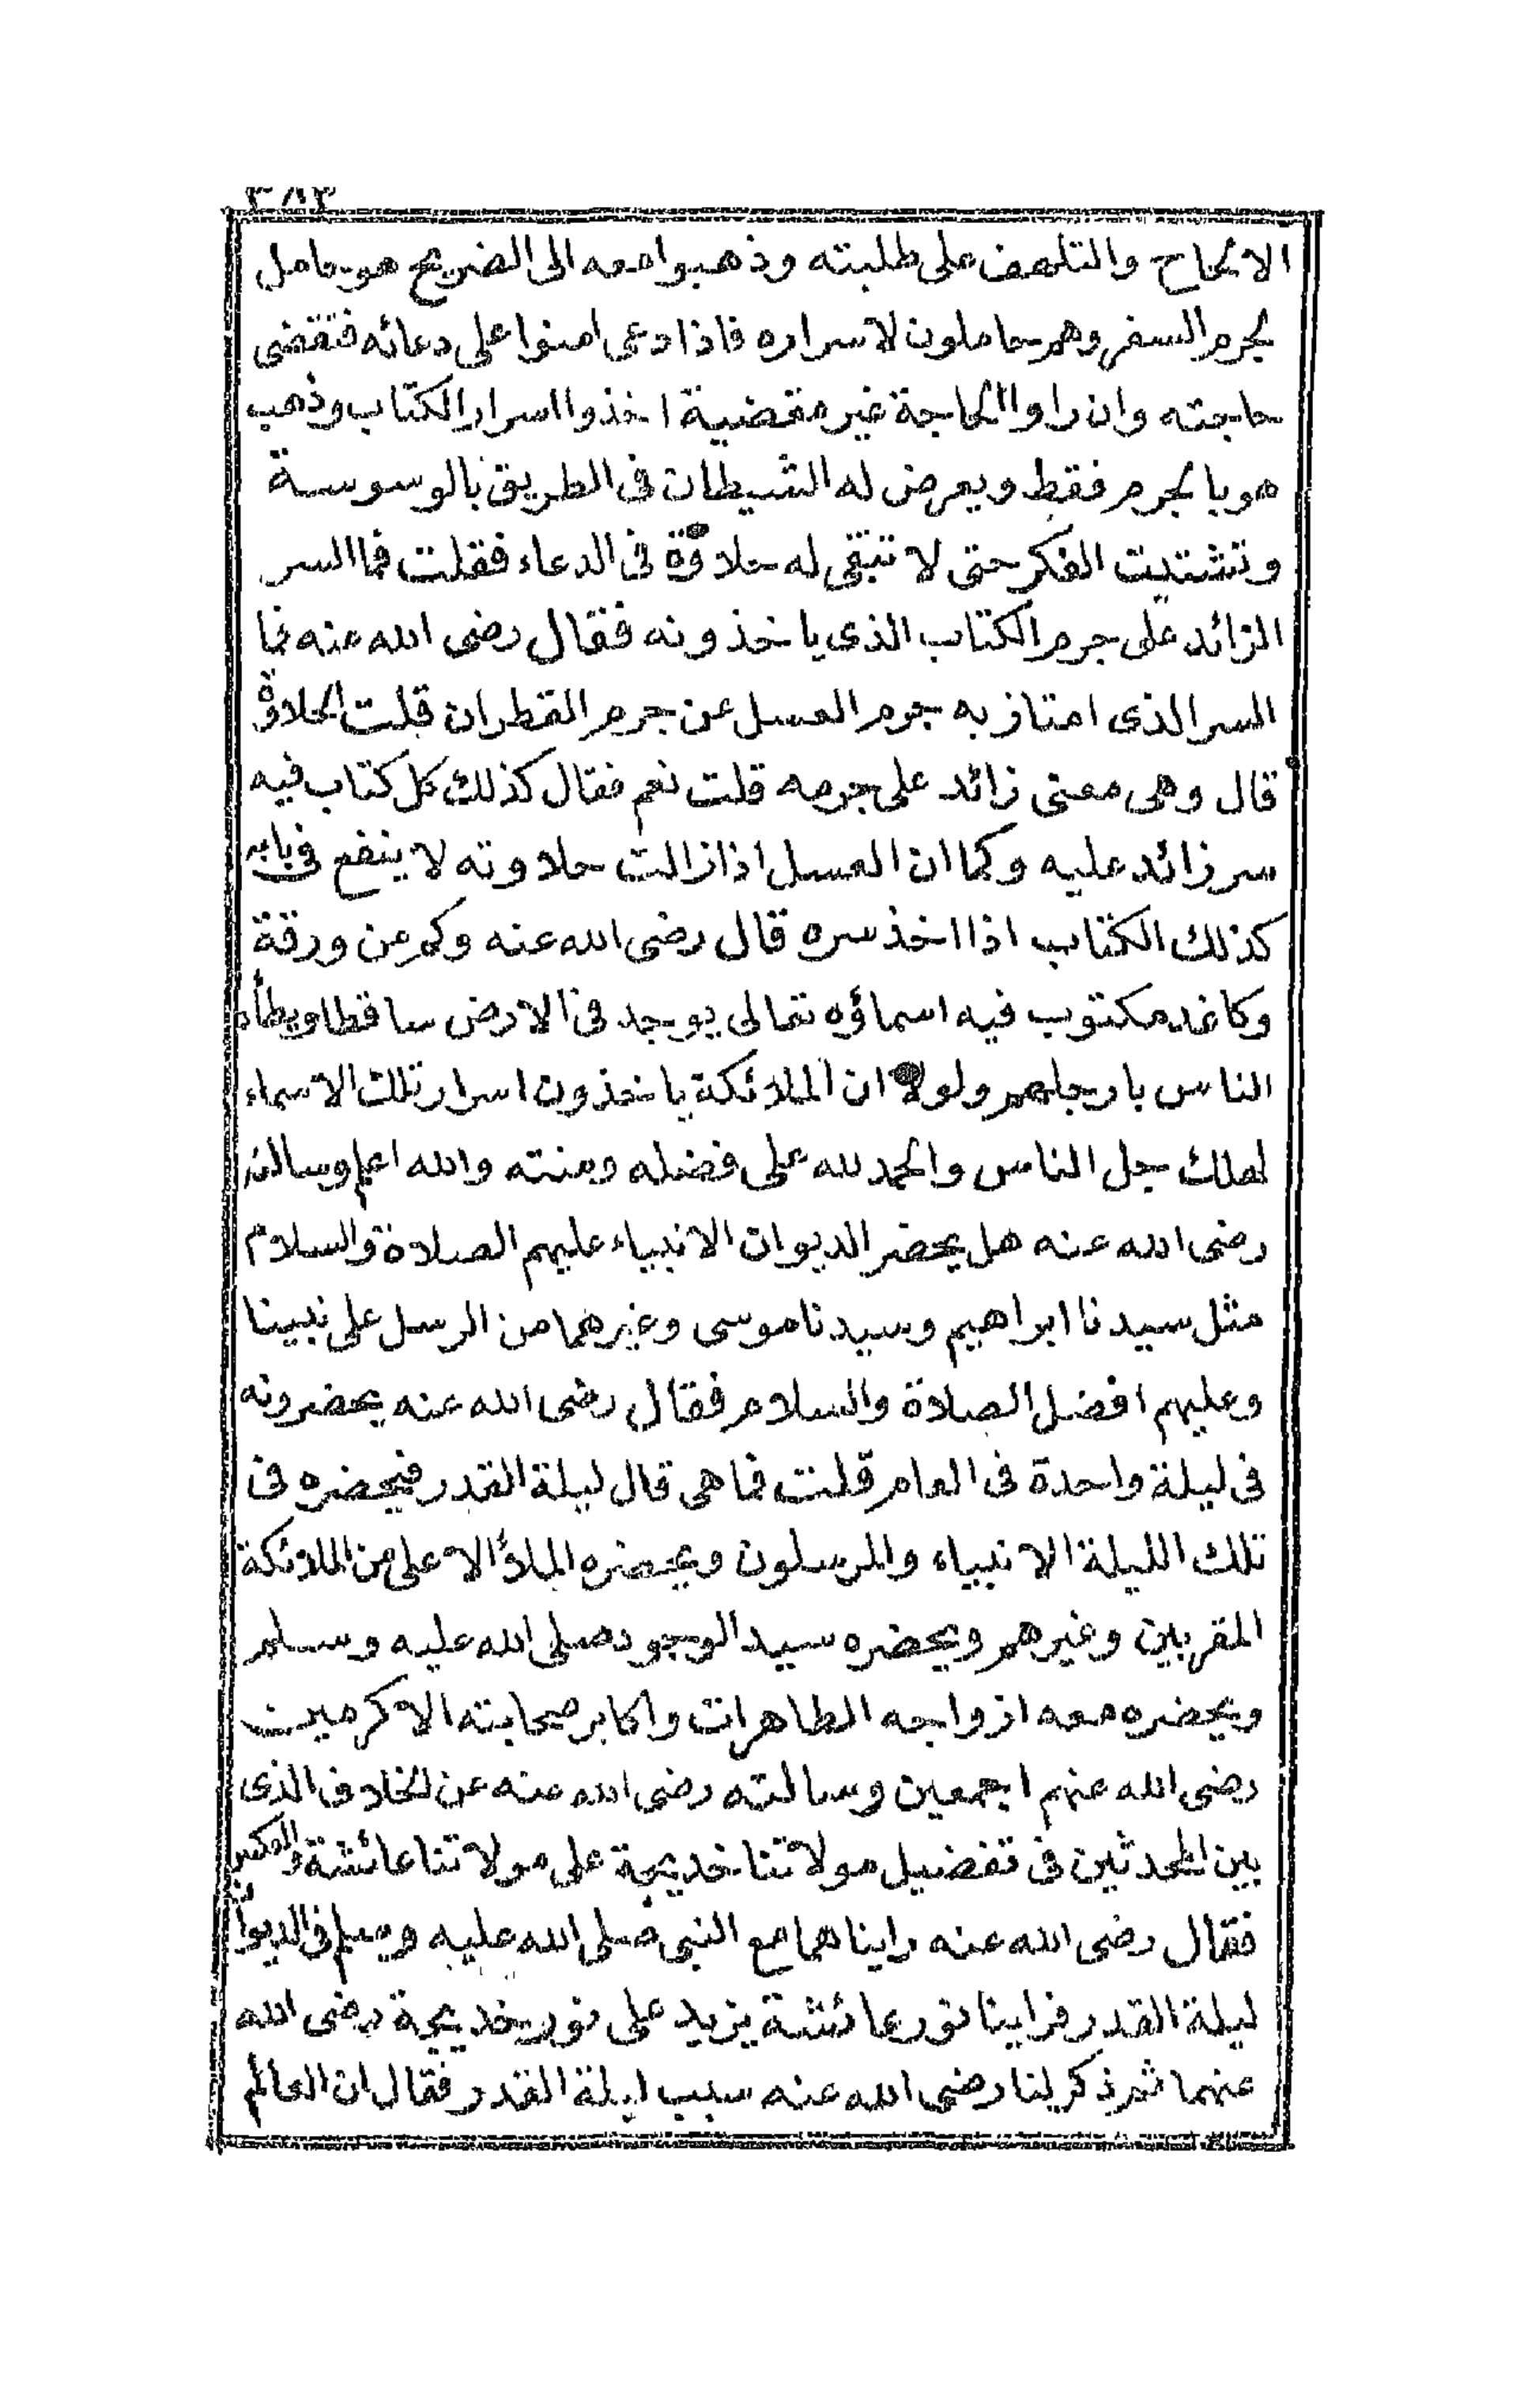 ٣٨٣
الالحاح والتلهف على طلبته وذهبوا معه الى الضريح هو حامل
لجرم السفر وهم حاملون لاسراره فاذا دعى امنوا على دعائه فتقضى
حاجته وان راوا الحاجة غير مقضية اخذوا اسرار الكتاب وذهب
هو بالجرم فقط ويعرض له الشيطان فى الطريق بالوسوسة
وتشتيت الفكر حتى لا تبقى له حلاوة فى الدعاء فقلت فما السر
الزائد على جرم الكتاب الذى ياخذونه فقال رضى الله عنه فما
السر الذى امتاز به جرم العسل عن جرم القطران قلت الحلاوة
قال وهى معنى زائد على جرمه قلت نعم فقال كذلك كل كتاب فيه
سر زائد عليه وكما ان العسل اذا زالت حلاوته لا ينفع فى بابه
كذلك الكتاب اذا اخذ سره قال رضى الله عنه وكم من ورقة
وكاغد مكتوب فيه اسماؤه تعالى يوجد فى الارض ساقطا ويطأه
الناس بارجلهم ولولا ان الملائكة ياخذون اسرار تلك الاسماء
لهلك جل الناس والحمد لله على فضله ومنته والله اعلم وسالته
رضى الله عنه هل يحضر الديوان الانبياء عليهم الصلاة والسلام
مثل سيدنا ابراهيم وسيدنا موسى وغيرهما من الرسل على نبينا
وعليهم افضل الصلاة والسلام فقال رضى الله عنه يحضرونه
فى ليلة واحدة فى العام قلت فما هى قال ليلة القدر فيحضره فى
تلك الليلة الانبياء والمرسلون ويحضره الملأ الاعلى من الملائكة
المقربين وغيرهم ويحضره سيد الوجود صلى الله عليه وسلم
ويحضره معه ازواجه الطاهرات واكابر صحابته الاكرمين
رضى الله عنهم اجمعين وسالته رضى الله عنه عن الخلاف الذى
بين المحدثين فى تفضيل مولاتنا خديجة على مولاتنا عائشة والعكس
فقال رضى الله عنه رايناهما مع النبى صلى الله عليه وسلم فى الديوان
ليلة القدر فراينا نور عائشة يزيد على نور خديجة رضى الله
عنهما ثم ذكر لنا رضى الله عنه سبب ليلة القدر فقال ان العالم